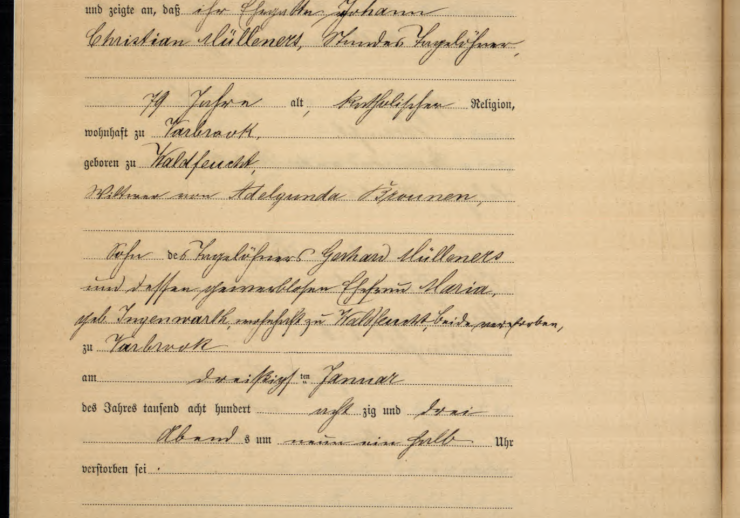 und zeigte an, daß ihr Ehegatte Johann
Christian Mülleners, Standes Tagelöhner,
79 Jahre alt, katholischer Religion,
wohnhaft zu Karbrook,
geboren zu Waldfeucht,
Wittwer von Adelgunda
Sohn des Tagelöhners Gerhard Mülleners
und dessen gewerblosen Ehefrau Maria,
geb. wohnhaft zu Waldfeucht, beide verstorben,
zu Karbrook
am dreißigsten Januar
des Jahres tausend acht hundert acht zig und drei
Abend s um neun ein halb Uhr
verstorben sei.